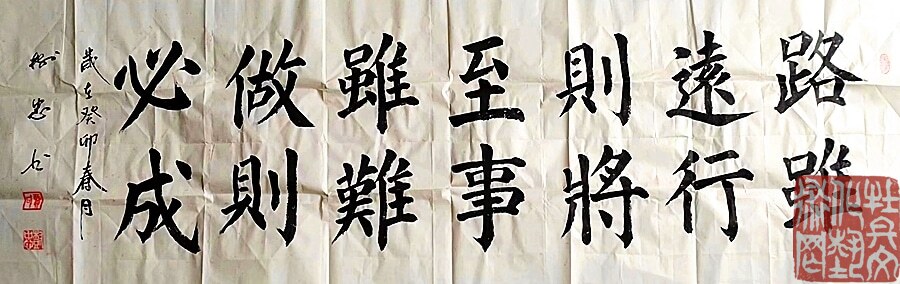 路雖
遠行
則將
至事
雖難
做則
必成
歲在癸卯春月